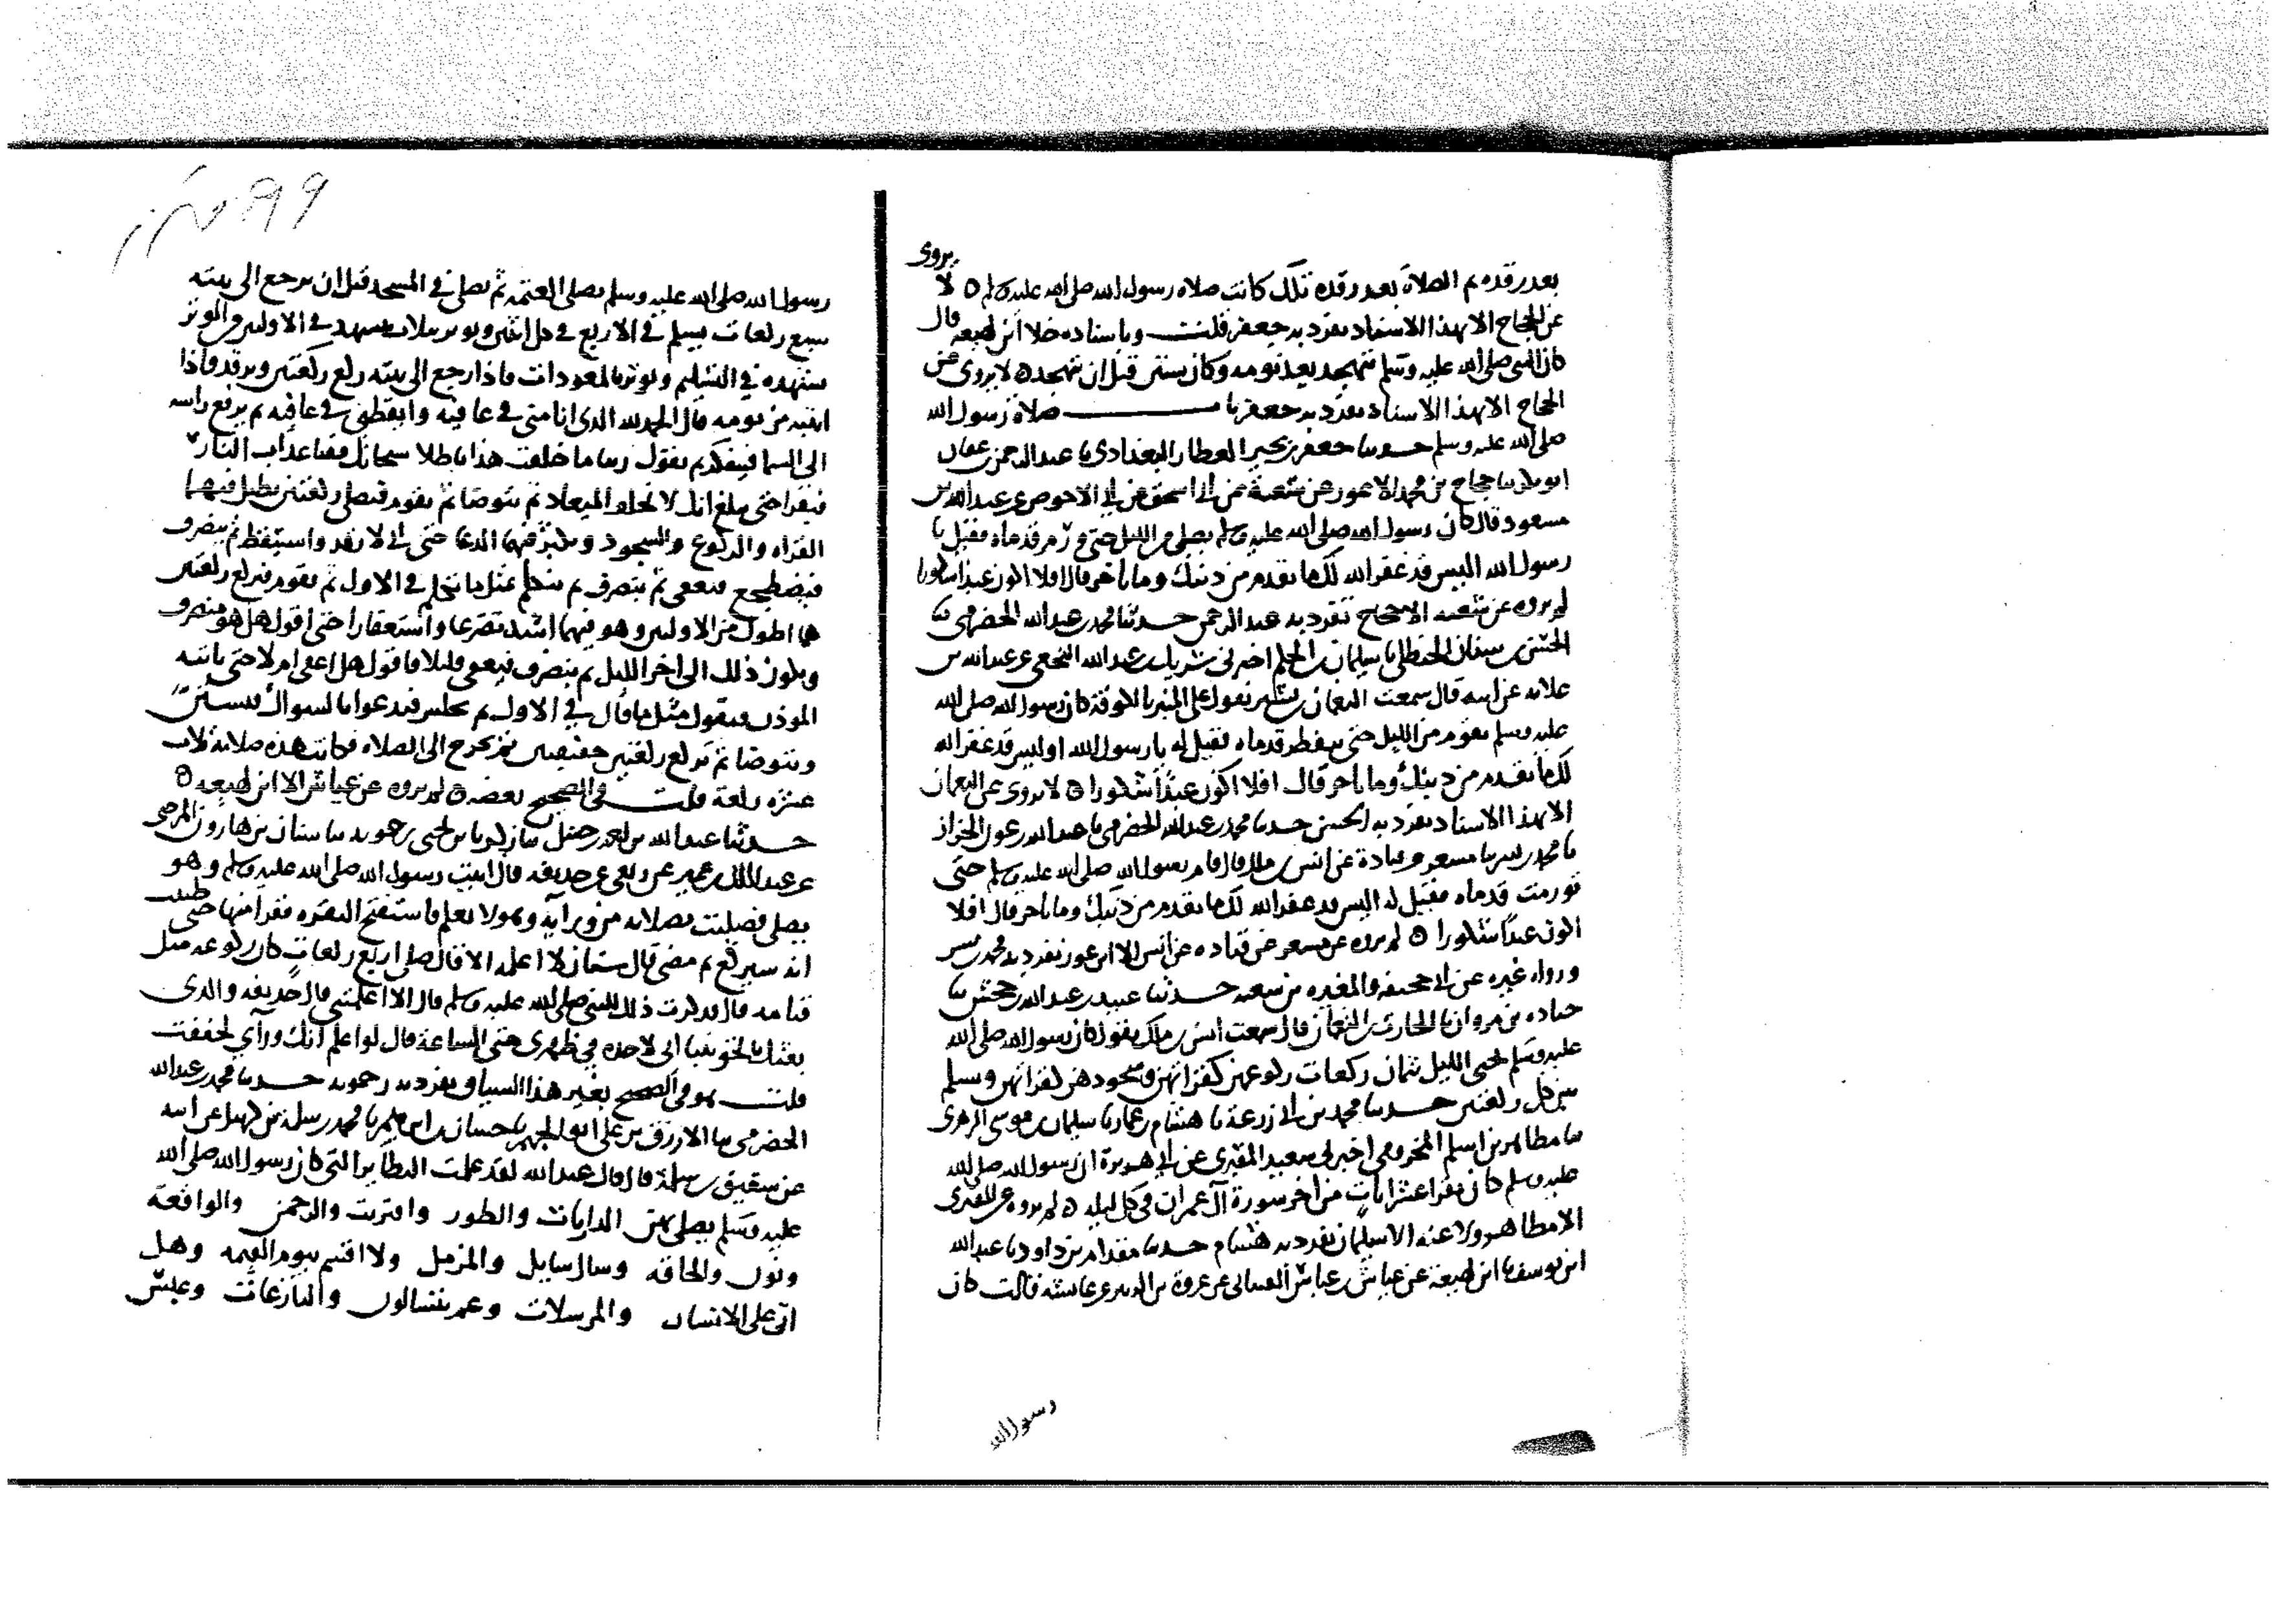 بعد رقده ثم الصلاة بعد رقدة تلك كانت صلاة رسول الله صلى الله عليه وسلم ه لا يروى
عن الحجاج الا بهذا الاسناد تفرد به جعفر قلت وباسناده خلا ابن لهيعة قال
كان النبى صلى الله عليه وسلم يتهجد بعد نومه وكان يستن قبل ان يتهجد ه لا يروى عن
الحجاج الا بهذا الاسناد تفرد به جعفر با صلاة رسول الله
صلى الله عليه وسلم حدثنا جعفر بن بجير العطار البغدادى ثنا عبد الرحمن بن عفان
ابو بكر ثنا حجاج بن محمد الاعور عن شعبة عن ابى اسحق عن ابى الاحوص عن عبد الله بن
مسعود قال كان رسول الله صلى الله عليه وسلم يصلى من الليل حتى ورم قدماه فقيل يا
رسول الله اليس قد غفر الله لك ما تقدم من ذنبك وما تاخر قال افلا اكون عبدا شكورا
لم يروه عن شعبة الا حجاج تفرد به عبد الرحمن حدثنا محمد بن عبد الله الحضرمى ثنا
سفيان الحنظلى ثنا سليمان بن الحكم اخبرنى شريك بن عبد الله النخعى عن عبد الله بن
علاثه عن ابيه قال سمعت النعمان بن بشير يقول على المنبر بالكوفة كان رسول الله صلى الله
عليه وسلم يقوم من الليل حتى تفطر قدماه فقيل له يا رسول الله اوليس قد غفر الله
لك ما تقدم من ذنبك وما تاخر قال افلا اكون عبدا شكورا ه لا يروى عن النعمان
الا بهذا الاسناد تفرد به الحسن حدثنا محمد بن عبد الله الحضرمى ثنا عبد الله بن عون الخراز
ثنا محمد بن بشر ثنا مسعر عن قتادة عن انس بن ملك قال قام رسول الله صلى الله عليه وسلم حتى
تورمت قدماه فقيل له اليس قد غفر الله لك ما تقدم من ذنبك وما تاخر قال افلا
اكون عبدا شكورا ه لم يروه عن مسعر عن قتاده عن انس الا ابن عون تفرد به محمد بن بشر
ورواه غيره عن ابى جحيفه والمغيره بن شعبه حدثنا عبيد بن عبد الله بن جحش ثنا
جناده بن مروان ثنا الحارث بن النعمان قال سمعت انس بن مالك يقول كان رسول الله صلى الله
عليه وسلم يحيى الليل بثمان ركعات ركوعهن كقراتهن وسجودهن كقراتهن ويسلم
بين كل ركعتين حدثنا محمد بن ابى زرعة ثنا هشام بن عمار ثنا سليمان بن موسى الزهرى
ثنا مظاهر بن اسلم المخزومى اخبرنى سعيد المقبرى عن ابى هريرة ان رسول الله صلى الله
عليه وسلم كان يقرا عشر ايات من اخر سورة آل عمران فى كل ليلة ه لم يروه عن المقبرى
الا مظاهر ولا عنه الا سليمان تفرد به هشام حدثنا مقدام بن داود ثنا عبد الله
ابن يوسف ثنا ابن لهيعة عن عياش بن عباس القتبانى عن عروة بن الزبير عن عائشه قالت كان
رسول الله
رسول الله صلى الله عليه وسلم يصلى العتمة ثم يصلى فى المسجد قبل ان يرجع الى بيته
سبع ركعات يسلم فى الاربع فى كل اثنتين ويوتر بثلاث يتشهد فى الاوليين من الوتر
تشهده فى التسليم ويوتر بالمعوذات فاذا رجع الى بيته ركع ركعتين ويرقد فاذا
انتبه من نومه قال الحمد لله الذى انامنى فى عافية وايقظنى فى عافية ثم يرفع راسه
الى السما فيتفكر ثم يقول ربنا ما خلقت هذا باطلا سبحانك فقنا عذاب النار
فيقرا حتى يبلغ انك لا تخلف الميعاد ثم يتوضا ثم يقوم فيصلى ركعتين يطيل فيهما
القراه والركوع والسجود ويكثر فيهما الدعا حتى انى لارقد واستيقظ ثم ينصرف
فيضطجع فيغفى ثم ينصرف ثم يتكلم بمثل ما تكلم فى الاول ثم يقوم فيركع ركعتين
هما اطول من الاوليين وهو فيهما اشد تضرعا واستغفارا حتى اقول هل هو منصرف
ويكون ذلك الى اخر الليل ثم ينصرف فيغفى قليلا فاقول هل اغفى ام لا حتى ياتيه
الموذن فيقول مثل ما قال فى الاول ثم يجلس فيدعوا بالسواك فيستن
ويتوضا ثم يركع ركعتين خفيفتين ثم يخرج الى الصلاة فكانت هذه صلاته ثلاث
عشرة ركعة قلت فى الصحيح بعضه ه لم يروه عن عياش الا ابن لهيعه ه
حدثنا عبد الله بن احمد بن حنبل ثنا زكريا بن يحيى زحمويه ثنا سنان بن هارون البرجمى
عن عبد الملك بن عمير عن ربعى عن حذيفه قال اتيت رسول الله صلى الله عليه وسلم وهو
يصلى فصليت بصلاته من ورايه وهو لا يعلم فاستفتح البقره فقرا منها حتى ظننت
انه سيركع ثم مضى قال سنان لا اعلمه الا قال صلى اربع ركعات كان ركوعه مثل
قيامه قال فذكرت ذلك للنبى صلى الله عليه وسلم قال الا اعلمتنى قال حذيفه والذى
بعثك بالحق نبيا انى لاجده فى ظهرى حتى الساعة قال لو اعلم انك ورآى لخففت
قلت هو فى الصحيح بغير هذا السياق تفرد به زحمويه حدثنا محمد بن عبد الله
الحضرمى ثنا الازرق بن على ابو الجهم ثنا حسان بن ابراهيم ثنا محمد بن سلمه بن كهيل عن ابيه
عن شقيق بن سلمة قال قال عبد الله لقد علمت النظاير التى كان رسول الله صلى الله
عليه وسلم يصلى بهن الذاريات والطور واقتربت والرحمن والواقعة
ونون والحاقه وسال سايل والمزمل ولا اقسم بيوم القيمه وهل
اتى على الانسان والمرسلات وعم يتسالون والنازعات وعبس